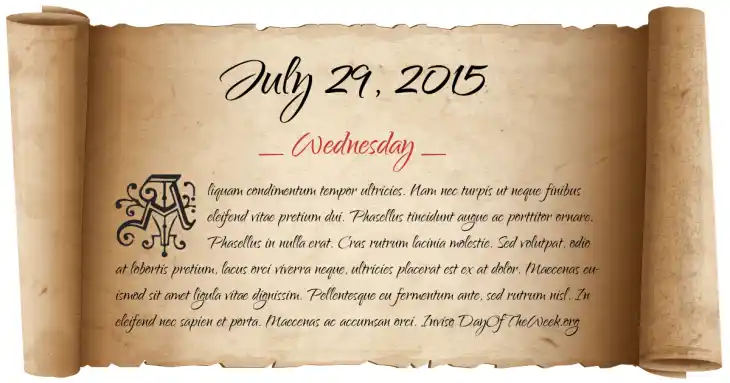 July 29, 2015
_ Wednesday _
Aliquam condimentum tempor ultricies. Nam nec turpis ut neque finibus
eleifend vitae pretium dui. Phasellus tincidunt augue ac porttitor ornare.
Phasellus in nulla erat. Cras rutrum lacinia molestie. Sed volutpat, odio
at lobortis pretium, lacus orci viverra neque, ultricies placerat est ex at dolor. Maecenas eu-
ismod sit amet ligula vitae dignissim. Pellentesque eu fermentum ante, sed rutrum nisl. In
eleifend nec sapien et porta. Maecenas ac accumsan orci. Inviso DayOfTheWeek.org